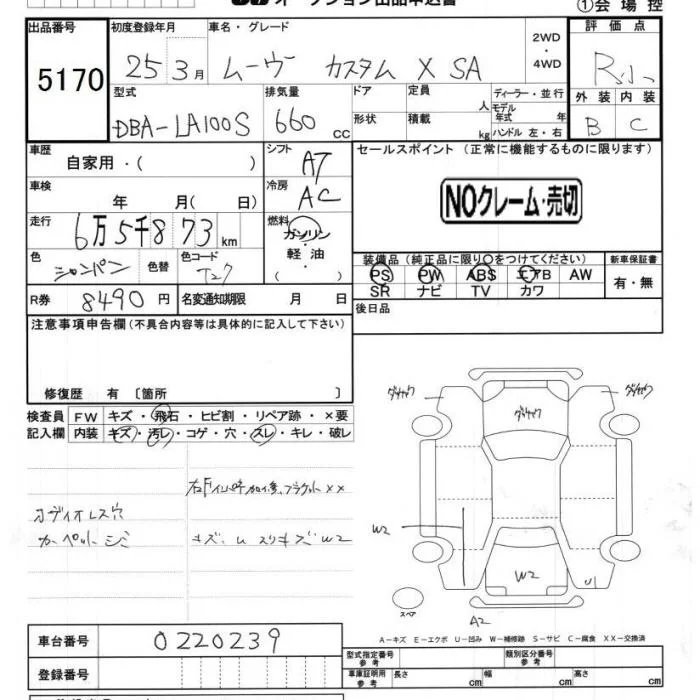 オークション出品申込書
①会場控
出品番号 初度登録年月 車名・グレード 2WD・4WD 評価点
5170 25 3月 ムーヴ カスタム X SA R小
外装 内装
B C
型式 排気量 ドア 定員 人 ディーラー・並行
DBA-LA100S 660 cc 形状 積載 kg モデル年式 年
ハンドル 左・右
車歴 シフト セールスポイント (正常に機能するものに限ります)
自家用・( ) AT
車検 冷房 NOクレーム・売切
年 月( 日) AC
走行 燃料
6万5千873km ガソリン・軽油・( )
色 色替 色コード 装備品(純正品に限り○をつけてください) 新車保証書
シャンパン T27 PS PW ABS エアB AW 有・無
SR ナビ TV カワ
R券 8490円 名変通知期限 月 日 後日品
注意事項申告欄(不具合内容等は具体的に記入して下さい)
修復歴 有 〔箇所 〕
検査員 FW キズ・飛石・ヒビ割・リペア跡・×要
記入欄 内装 キズ・汚レ・コゲ・穴・スレ・キレ・破レ
オーディオレス穴
カーペットシミ
W2
W2
U
スペア
A2
A-キズ E-エクボ U-凹み W-補修跡 S-サビ C-腐食 XX-交換済
車台番号 0220239
登録番号
型式指定番号 参考 類別区分番号 参考
車庫証明用 参考 長さ cm 幅 cm 高さ cm